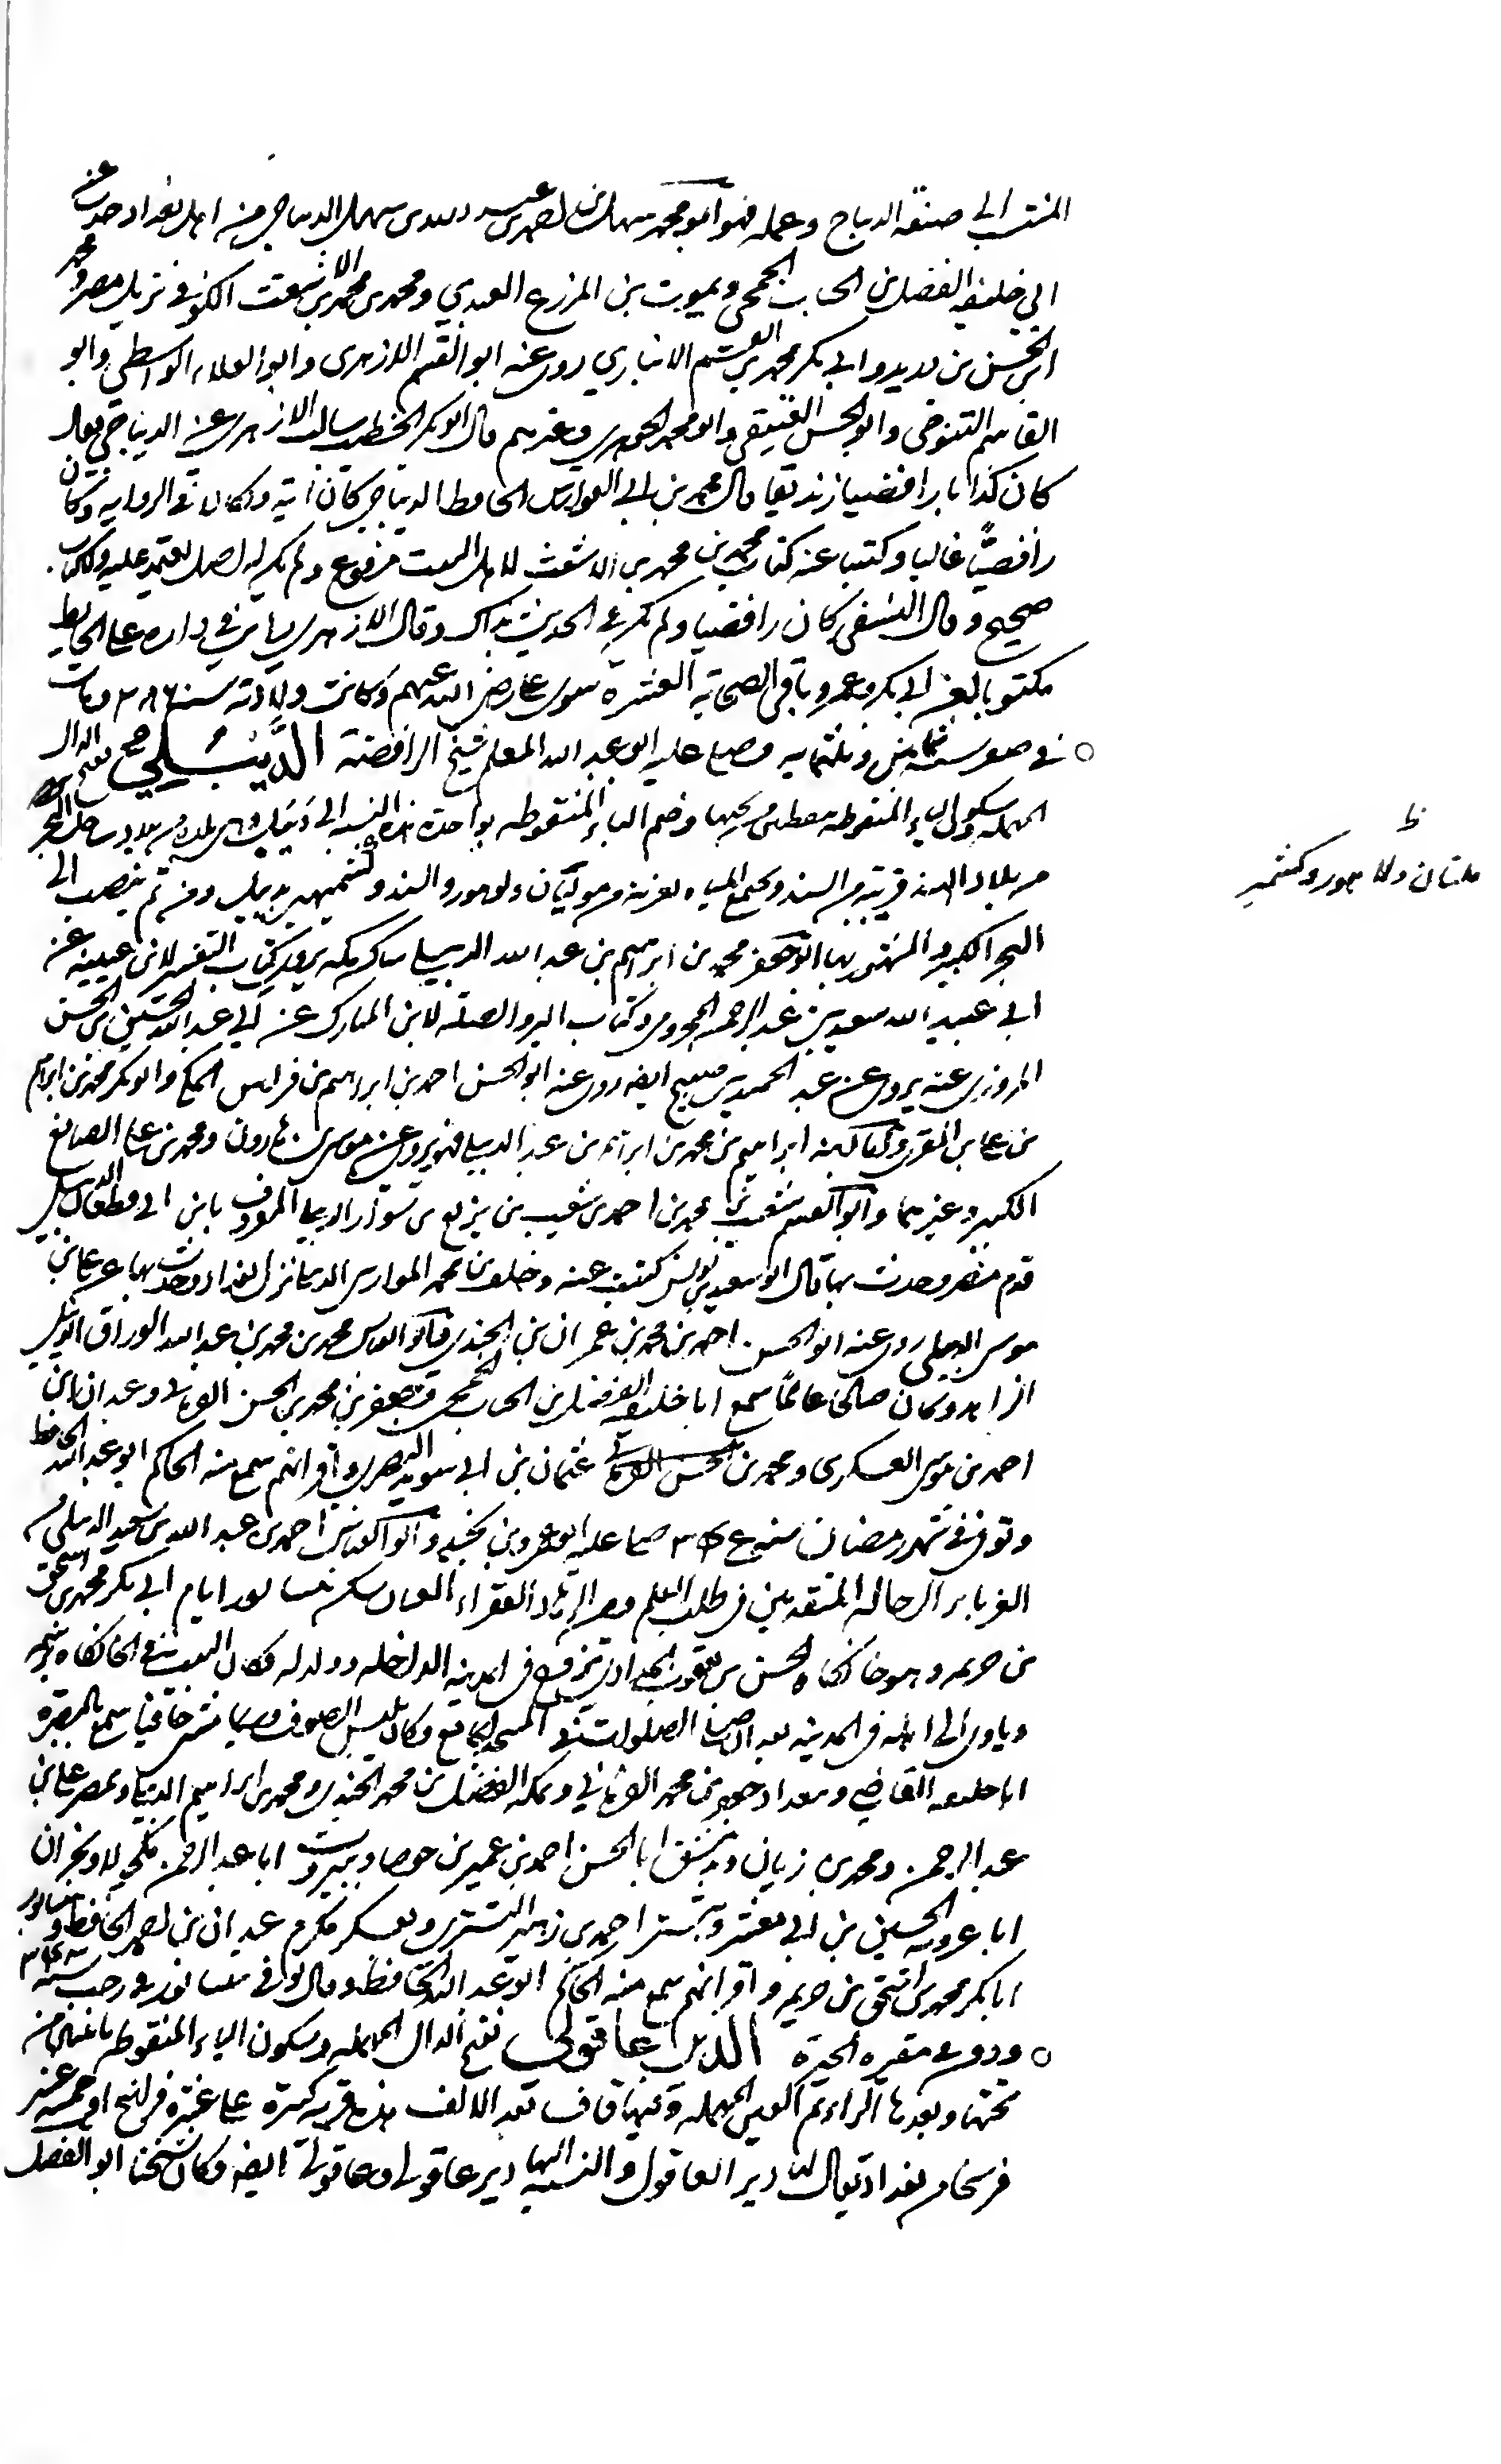 المنتسب الى صنعه الديباج وعمله فهو ابو محمد سهل بن احمد بن عبد الله بن سهل الديباجي من اهل بغداد حدث عن
ابي خليفه الفضل بن الحباب الجمحي ويموت بن المزرع العبدي ومحمد بن محمد بن الاشعث الكوفي نزيل مصر ومحمد
بن الحسن بن دريد وابي بكر محمد بن القسم الانباري روى عنه ابو القسم الازهري وابو العلاء الواسطي وابو
القاسم التنوخي وابو الحسن العتيقي وابو محمد الجوهري وغيرهم قال ابو بكر الخطيب سالت الازهري عن الديباجي فقال
كان كذابا رافضيا زنديقا قال محمد بن ابي الفوارس الحافظ الديباجي كان آية ونكالا في الرواية وكان
رافضيًا غاليا وكتبنا عنه كتاب محمد بن محمد بن الاشعث لاهل البيت مرفوع ولم يكن له اصل يعتمد عليه ولا كتاب
صحيح وقال العتيقي كان رافضيا ولم يكن في الحديث بذاك وقال الازهري رايت في داره على الحايط
مكتوبا لعن ابي بكر وعمر وباقي الصحابه العشرة سوى علي رضي الله عنهم وكانت ولادته سنة ٢٨٦ ومات
في صفر سنة ثمانين وثلثمايه وصلى عليه ابو عبد الله المعلم شيخ الرافضة الدَّيْبُلي بفتح الدال
المهمله وسكون الياء المنقوطه بنقطتين من تحتها وضم الباء المنقوطه بواحدة هذه النسبه الى دَيْبُل وهي بلدة من بلاد ساحل البحر
من بلاد الهند قريبة من السند ويجتمع المياه العذبة من مولتان ولوهور والسند وكشمير بديبل ومن ثم ينصب الى
البحر الكبير والمشهور بها ابو جعفر محمد بن ابراهيم بن عبد الله الديبلي ساكن مكه يروي كتاب التفسير لابن عيينه عن
ابي عبيد الله سعيد بن عبد الرحمن المخزومي وكتاب البر والصلة لابن المبارك عن ابي عبد الله الحسين بن الحسن
المروزي عنه يروي عن عبد الحميد بن صبيح ايضه روى عنه ابو الحسن احمد بن ابراهيم بن فراس المكي وابو بكر محمد بن ابراهيم
بن علي بن المقري وكذلك ابنه ابراهيم بن محمد بن ابراهيم بن عبد الله الديبلي فهو يروي عن موسى بن هارون ومحمد بن علي الصايغ
الكبير وغيرهما وابو القسم شعيب بن محمد بن احمد بن شعيب بن بزيع بن سوار الديبلي المعروف بابن ابي قطعان الديبلي
قدم مصر وحدث بها قال ابو سعيد بن يونس كتبت عنه وخلف بن محمد الموازيني الديبلي نزل بغداد وحدث بها عن علي بن
موسى الديبلي روى عنه ابو الحسن احمد بن محمد بن عمران بن الجندي وابو العباس محمد بن محمد بن عبد الله الوراق الديبلي
الزاهد وكان صالحا عالمًا سمع ابا خليفه الفضل بن الحباب الجمحي وجعفر بن محمد بن الحسن الفريابي وعبدان ابن
احمد بن موسى العسكري ومحمد بن عثمان بن ابي سويد البصري واقرانهم سمع منه الحاكم ابو عبد الله الحافظ
وتوفي في شهر رمضان سنة صلى عليه ابو عمرو بن نجيد وابو العباس احمد بن عبد الله بن سعيد الديبلي من
الغرباء الرحالة المتقدمين في طلب العلم ومن الزهاد الفقراء العباد سكن نيسابور ايام ابي بكر محمد بن اسحق
بن خزيمه وهو خانكاه الحسن بن يعقوب الحدادي تزوج في المدينه الداخله وولد له وكان البيت في الخانكاه برسمه
وياوي الى اهله في المدينه بعد ان صلى الصلوات في المسجد الجامع وكان يلبس الصوف وربما مشى حافيا سمع بالبصرة
ابا خليفه القاضي وببغداد جعفر بن محمد الفريابي وبمكه المفضل بن محمد الجندي ومحمد بن ابراهيم الديبلي وبمصر علي بن
عبد الرحمن ومحمد بن زبان وبدمشق ابا الحسن احمد بن عمير بن جوصا وببيروت ابا عبد الرحمن مكحولا وبحران
ابا عروبه الحسين بن ابي معشر وبتستر احمد بن زهير التستري وبعسكر مكرم عبدان بن احمد الحافظ وبنيسابور
ابا بكر محمد بن اسحق بن خزيمه واقرانهم سمع منه الحاكم ابو عبد الله الحافظ وقال توفي بنيسابور في رجب سنه
ودفن في مقبره الحيرة الديرعاقولي بفتح الدال المهمله وسكون الياء المنقوطه باثنتين من
تحتها وبعدها الراء ثم العين المهمله وفيها قاف بعد الالف هذه قريه كبيرة على عشرة فراسخ او خمسه عشر
فرسخا من بغداد يقال لها دير العاقول والنسبه اليها ديرعاقولي وعاقولي ايضه وكان شيخنا ابو الفضل
ظ
ملتان ولاهور وكشمير